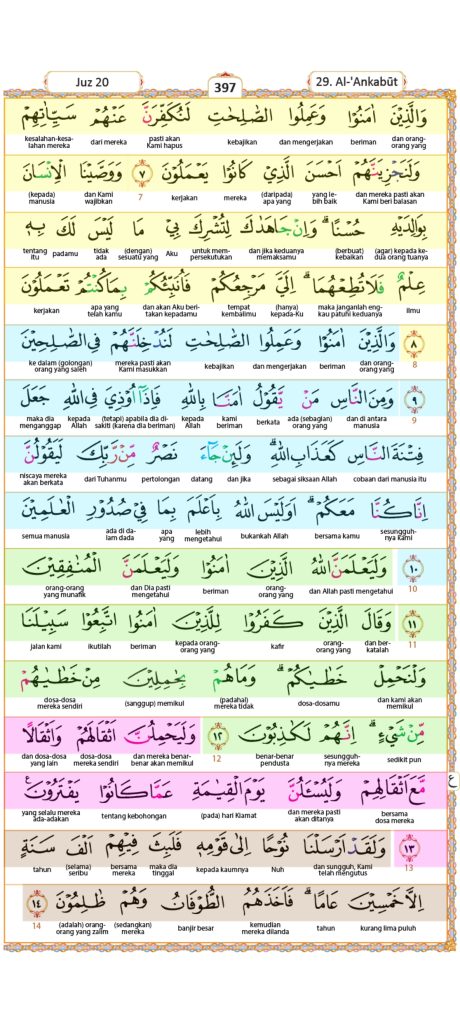 Juz 20
397
29. Al-'Ankabūt
وَالَّذِيْنَ اٰمَنُوْا وَعَمِلُوا الصّٰلِحٰتِ لَنُكَفِّرَنَّ عَنْهُمْ سَيِّاٰتِهِمْ
dan orang-orang yang beriman dan mengerjakan kebajikan pasti akan Kami hapus dari mereka kesalahan-kesalahan mereka
وَلَنَجْزِيَنَّهُمْ اَحْسَنَ الَّذِيْ كَانُوْا يَعْمَلُوْنَ ٧ وَوَصَّيْنَا الْاِنْسَانَ
dan mereka pasti akan Kami beri balasan yang lebih baik (daripada) apa yang mereka kerjakan 7 dan Kami wajibkan (kepada) manusia
بِوَالِدَيْهِ حُسْنًا ۗوَاِنْ جَاهَدٰكَ لِتُشْرِكَ بِيْ مَا لَيْسَ لَكَ بِهٖ
(agar) kepada kedua orang tuanya (berbuat) kebaikan dan jika keduanya memaksamu untuk mempersekutukan Aku (dengan) sesuatu yang tidak ada padamu tentang itu
عِلْمٌ فَلَا تُطِعْهُمَا ۗاِلَيَّ مَرْجِعُكُمْ فَاُنَبِّئُكُمْ بِمَا كُنْتُمْ تَعْمَلُوْنَ
ilmu maka janganlah engkau patuhi keduanya (hanya) kepada-Ku tempat kembalimu dan akan Aku beritakan kepadamu apa yang telah kamu kerjakan
٨ وَالَّذِيْنَ اٰمَنُوْا وَعَمِلُوا الصّٰلِحٰتِ لَنُدْخِلَنَّهُمْ فِى الصّٰلِحِيْنَ
8 dan orang-orang yang beriman dan mengerjakan kebajikan mereka pasti akan Kami masukkan ke dalam (golongan) orang yang saleh
٩ وَمِنَ النَّاسِ مَنْ يَّقُوْلُ اٰمَنَّا بِاللّٰهِ فَاِذَآ اُوْذِيَ فِى اللّٰهِ جَعَلَ
9 dan di antara manusia ada (sebagian) orang yang berkata kami beriman kepada Allah (tetapi) apabila dia disakiti (karena dia beriman) kepada Allah maka dia menganggap
فِتْنَةَ النَّاسِ كَعَذَابِ اللّٰهِ ۗوَلَىِٕنْ جَاۤءَ نَصْرٌ مِّنْ رَّبِّكَ لَيَقُوْلُنَّ
cobaan dari manusia itu sebagai siksaan Allah dan jika datang pertolongan dari Tuhanmu niscaya mereka akan berkata
اِنَّا كُنَّا مَعَكُمْ ۗاَوَلَيْسَ اللّٰهُ بِاَعْلَمَ بِمَا فِيْ صُدُوْرِ الْعٰلَمِيْنَ
sesungguhnya Kami bersama kamu bukankah Allah lebih mengetahui apa yang ada di dalam dada semua manusia
١٠ وَلَيَعْلَمَنَّ اللّٰهُ الَّذِيْنَ اٰمَنُوْا وَلَيَعْلَمَنَّ الْمُنٰفِقِيْنَ
10 dan Allah pasti mengetahui orang-orang yang beriman dan Dia pasti mengetahui orang-orang yang munafik
١١ وَقَالَ الَّذِيْنَ كَفَرُوْا لِلَّذِيْنَ اٰمَنُوا اتَّبِعُوْا سَبِيْلَنَا
11 dan berkatalah orang-orang yang kafir kepada orang-orang yang beriman ikutilah jalan kami
وَلْنَحْمِلْ خَطٰيٰكُمْ ۗوَمَا هُمْ بِحٰمِلِيْنَ مِنْ خَطٰيٰهُمْ
dan kami akan memikul dosa-dosamu (padahal) mereka tidak (sanggup) memikul dosa-dosa mereka sendiri
مِّنْ شَيْءٍ ۗاِنَّهُمْ لَكٰذِبُوْنَ ١٢ وَلَيَحْمِلُنَّ اَثْقَالَهُمْ وَاَثْقَالًا
sedikit pun sesungguhnya mereka benar-benar pendusta 12 dan mereka benar-benar akan memikul dosa-dosa mereka sendiri dan dosa-dosa yang lain
مَّعَ اَثْقَالِهِمْ وَلَيُسْـَٔلُنَّ يَوْمَ الْقِيٰمَةِ عَمَّا كَانُوْا يَفْتَرُوْنَ ࣖ
bersama dosa mereka dan mereka pasti akan ditanya (pada) hari Kiamat tentang kebohongan yang selalu mereka ada-adakan
ع
١٣ وَلَقَدْ اَرْسَلْنَا نُوْحًا اِلٰى قَوْمِهٖ فَلَبِثَ فِيْهِمْ اَلْفَ سَنَةٍ
13 dan sungguh, Kami telah mengutus Nuh kepada kaumnya maka dia tinggal bersama mereka (selama) seribu tahun
اِلَّا خَمْسِيْنَ عَامًا ۗفَاَخَذَهُمُ الطُّوْفَانُ وَهُمْ ظٰلِمُوْنَ ١٤
kurang lima puluh tahun kemudian mereka dilanda banjir besar (sedangkan) mereka (adalah) orang-orang yang zalim 14